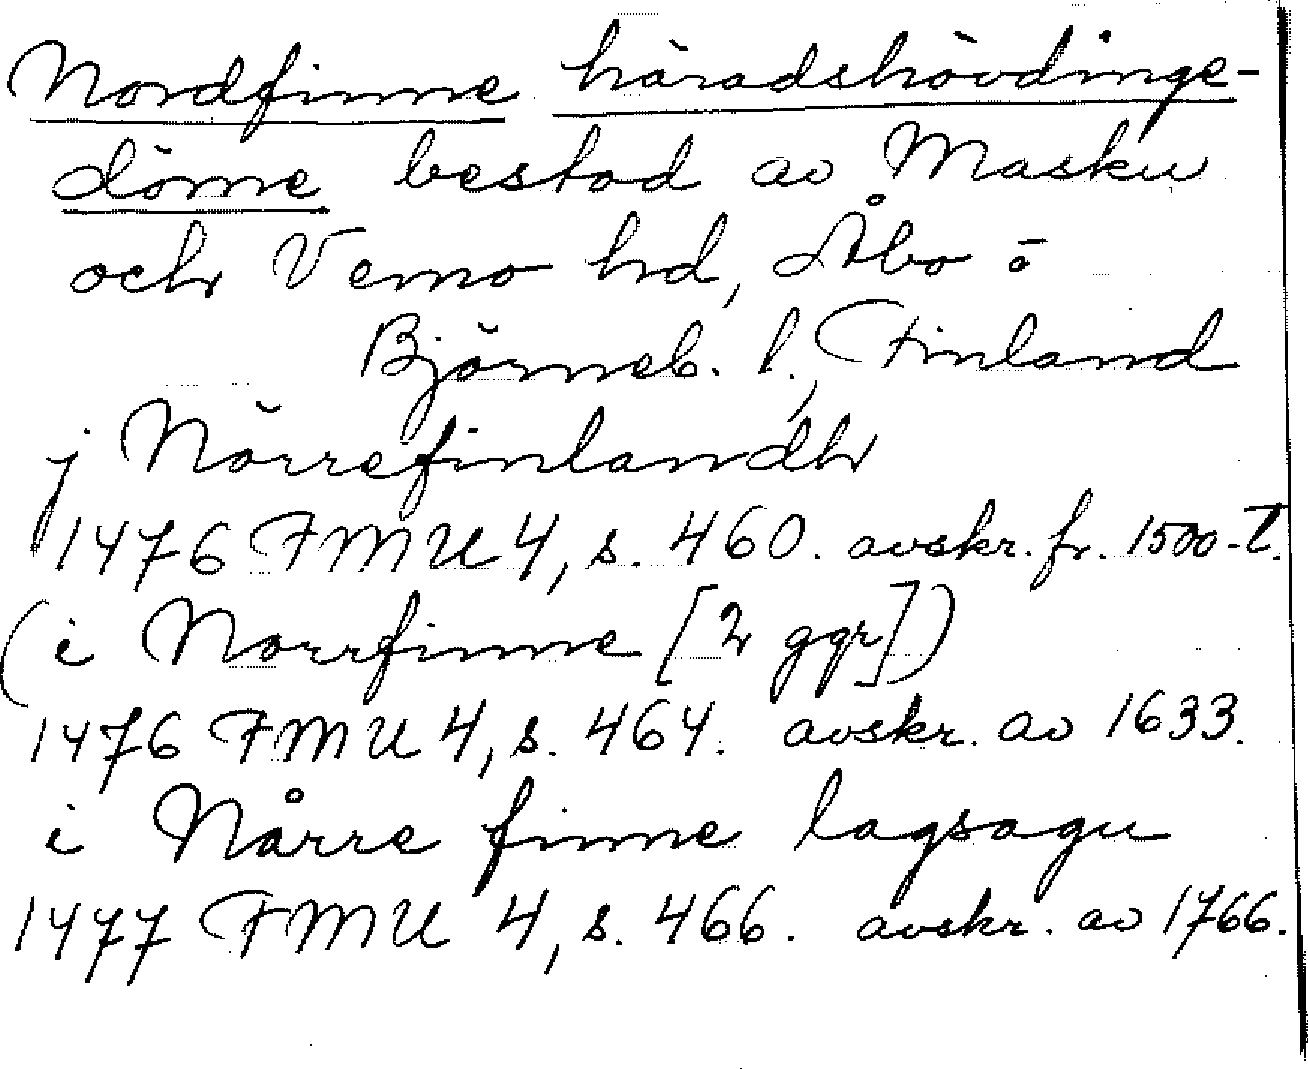 Nordfinne häradshövdinge-
döme bestod av Masku
och Vemo hd, Åbo o
Björneb. l., Finland
j Nörrefinlandh
1476 FMU 4, s. 460. avskr. fr. 1500-t.
(i Norrfinne [2 ggr])
1476 FMU 4, s. 464. avskr. av 1633.
i Nårre finne lagsagu
1477 FMU 4, s. 466. avskr. av 1766.